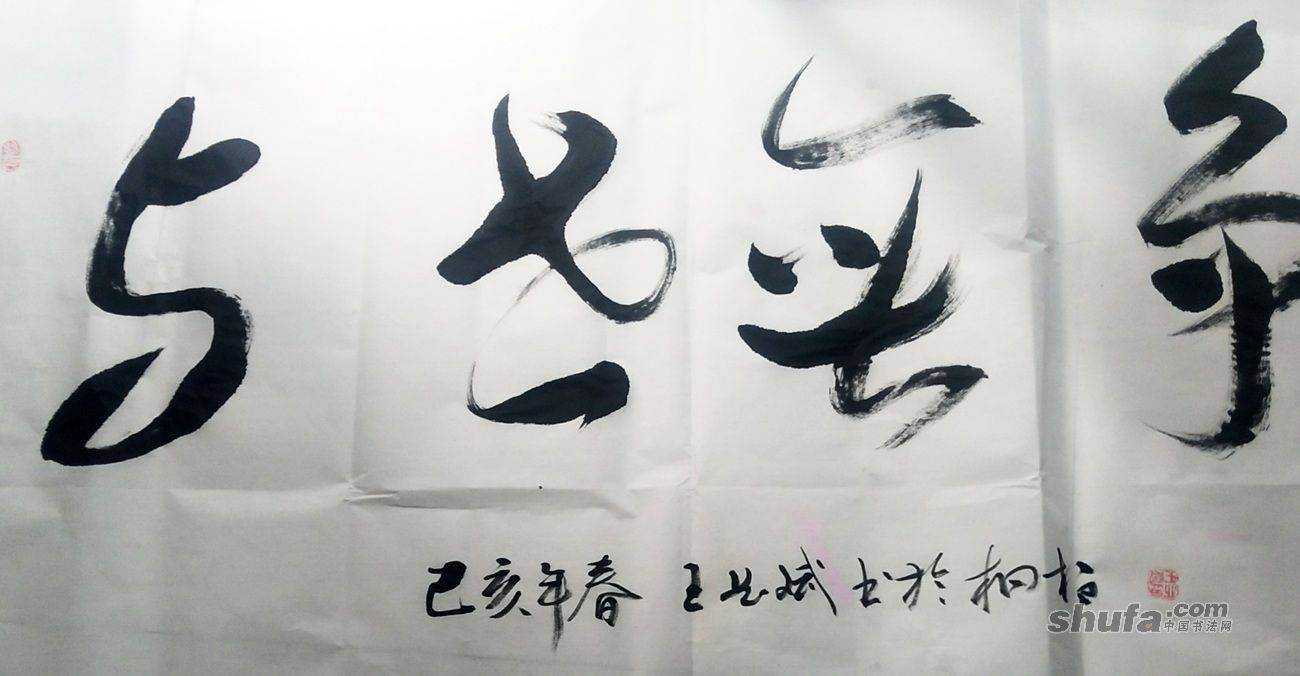 与世無争
己亥年春 王 斌书於桐柏
shufa.com
中国书法网